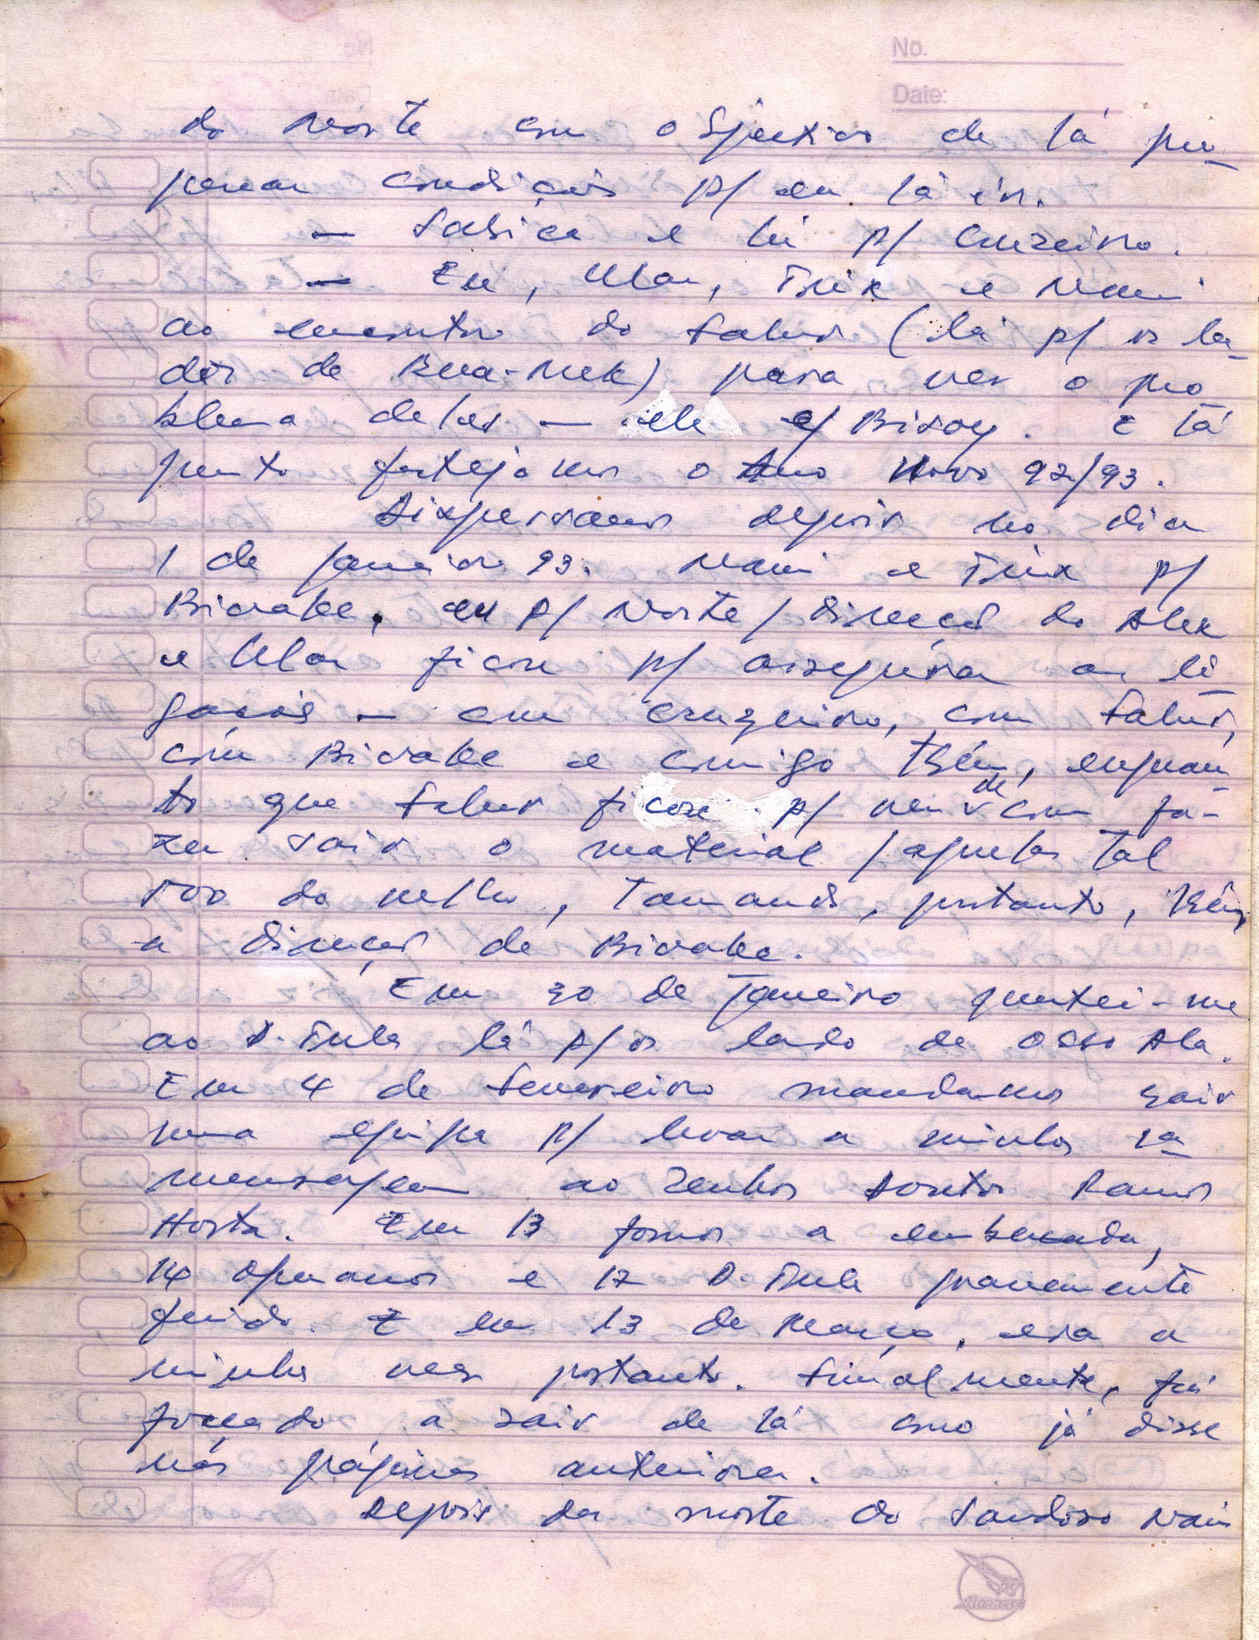 No.
Date:
do Norte com objectivo de lá pre-
parar condições p/ eu lá ir.
— Sabica e Lu p/ Cruzeiro.
— Eu, Ular, Trix e Nani
ao encontro do Sabur (lá p/ os la-
dos de Bua-Nuk) para ver o pro-
blema deles — ele e/ Bisoy. E lá
junto festejamos o Ano Novo 92/93.
Dispersamos depois no dia
1 de Janeiro 93. Nani e Trix p/
Bivake, eu p/ Norte/direcção do Alex
e Ular ficou p/ assegurar as li-
gações — com cruzeiro, com Sabur,
com Bivake e comigo tbém, enquan-
to que Sabur ficou p/ ver de com fa-
zer sair o material / aquelas tal
500 do velho, tomando, portanto, tbém,
a direcção de Bivake.
Em 30 de Janeiro juntei-me
ao D. Tula lá p/ os lado de Osso Ala.
Em 4 de Fevereiro mandamos sair
uma equipa p/ levar a minha 1a
mensagem ao Senhor Doutor Ramos
Horta. Em 13 fomos a emboscada,
14 apanhados e 17 D. Tula gravemente
ferido. E em 13 de Março, era a
minha vez portanto. Finalmente, fui
forçado a sair de lá como já disse
nas páginas anteriores.
Depois da morte do saudoso Nain